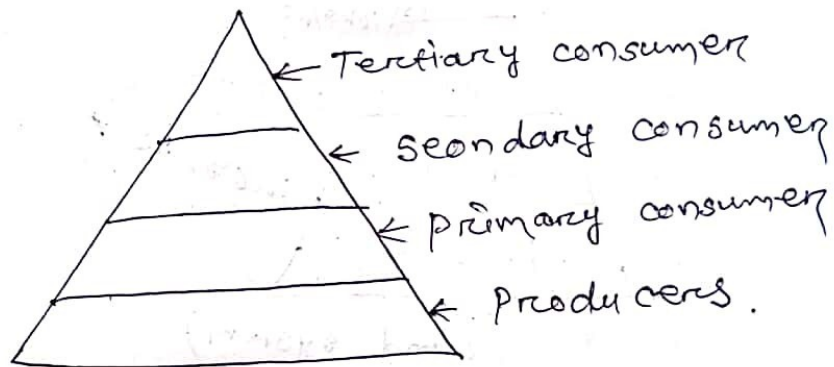 Tertiary consumer
seondary consumer
primary consumer
producers.